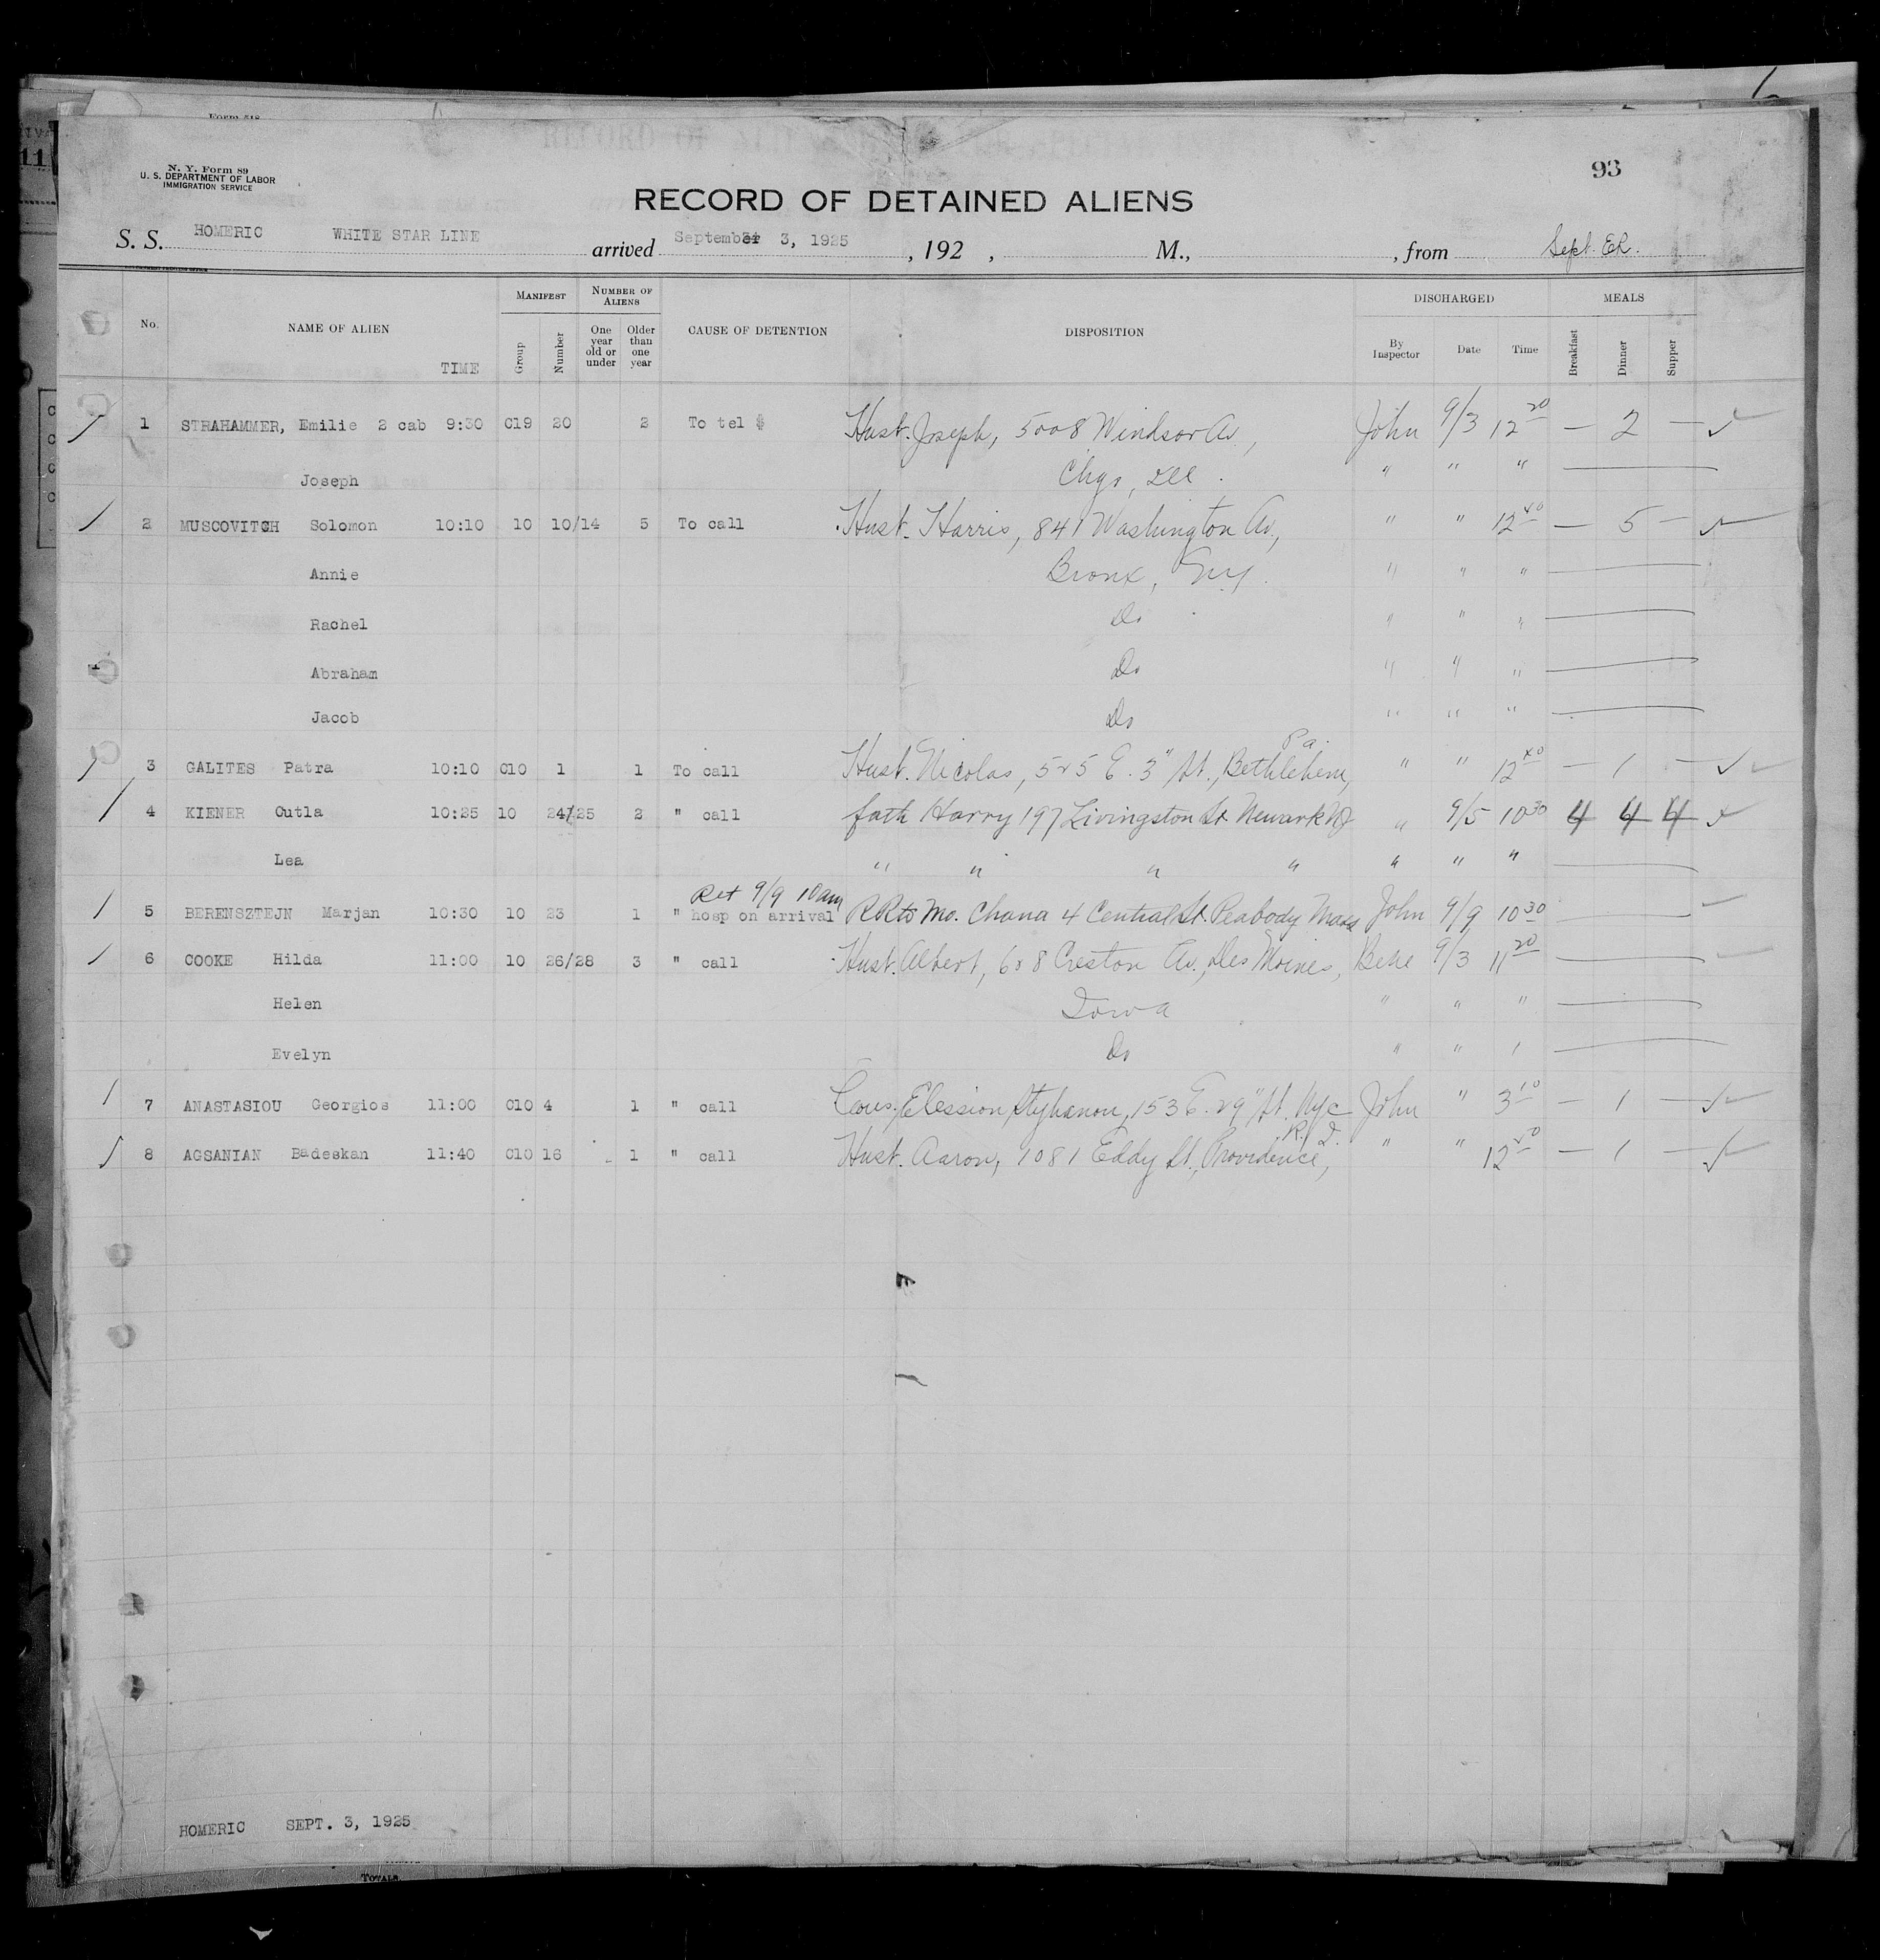 93
N. Y. Form 89
U. S. DEPARTMENT OF LABOR
IMMIGRATION SERVICE
RECORD OF DETAINED ALIENS
S. S. HOMERIC WHITE STAR LINE arrived September 3, 1925, 192 , M., , from Sept.
No. NAME OF ALIEN TIME MANIFEST Group Number NUMBER OF ALIENS One year old or under Older than one year CAUSE OF DETENTION DISPOSITION DISCHARGED By Inspector Date Time MEALS Breakfast Dinner Supper
1 STRAHAMMER, Emilie 2 cab 9:30 C19 20 2 To tel $ Hust. Joseph, 5008 Windsor Av., John 9/3 12 20 — 2 —
Joseph Chgo, Ill. " " "
2 MUSCOVITCH Solomon 10:10 10 10/14 5 To call Hust. Harris, 841 Washington Av., " " 12 40 — 5 —
Annie Bronx, NY. " " "
Rachel Do " " "
Abraham Do " " "
Jacob Do " " "
3 GALITES Patra 10:10 C10 1 1 To call Hust. Nicolas, 525 E. 3" St., Bethlehem, Pa. " " 12 40 — 1 —
4 KIENER Cutla 10:25 10 24/25 2 " call fath Harry 197 Livingston St Newark NJ " 9/5 10 30 4 4 4
Lea " " " " " " "
5 BERENSZTEJN Marjan 10:30 10 23 1 Ret 9/9 10am " hosp on arrival RR to Mo. Chana 4 Central St. Peabody Mass John 9/9 10 30
6 COOKE Hilda 11:00 10 26/28 3 " call Hust. Albert, 608 Creston Av., Des Moines, 9/3 11 20
Helen Iowa " " "
Evelyn Do " " "
7 ANASTASIOU Georgios 11:00 C10 4 1 " call Cous. 153 E. 29" St. NYC John " 3 10 — 1 —
8 AGSANIAN Badeskan 11:40 C10 16 1 " call Hust. Aaron, 1081 Eddy St., Providence, R. I. " " 12 50 — 1 —
HOMERIC SEPT. 3, 1925
TOTALS